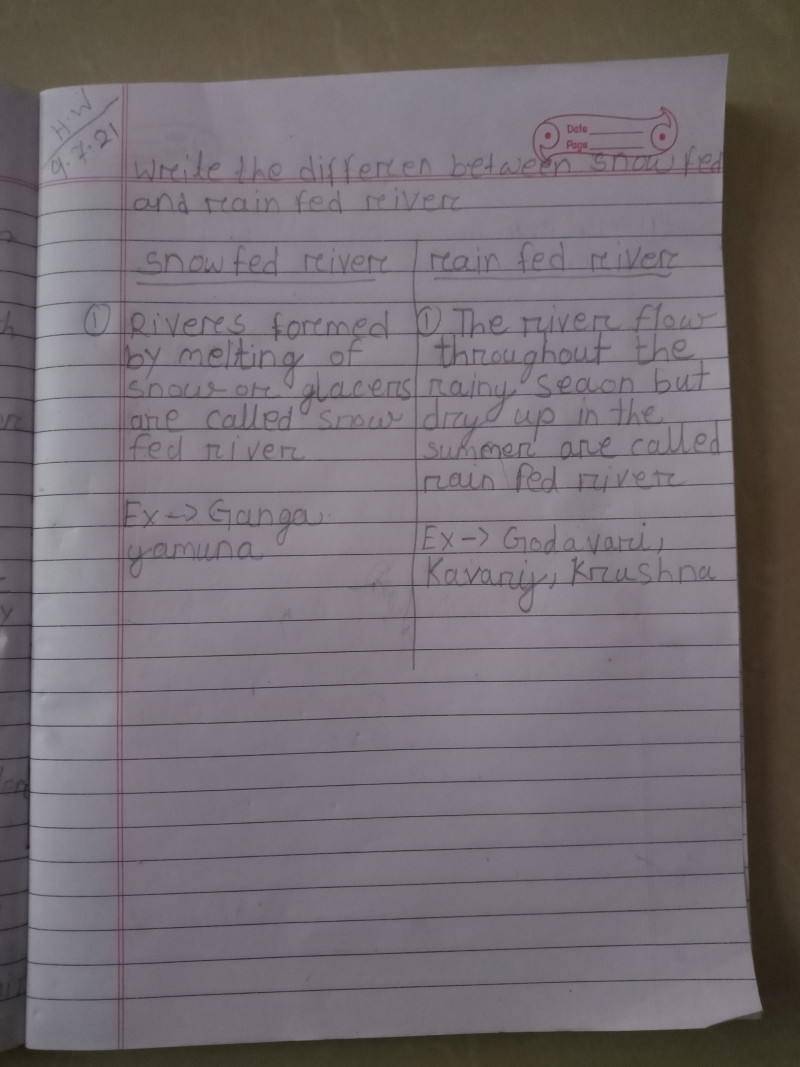 H.W
9.7.21
Date
Page
Write the differen between snow fed
and rain fed river
snow fed river
rain fed river
① Riveres formed
by melting of
snow or glacers
are called snow
fed river
Ex -> Ganga
yamuna
① The river flow
throughout the
rainy seaon but
dry up in the
summer are called
rain fed river
Ex -> Godavari,
Kavarij, Krushna